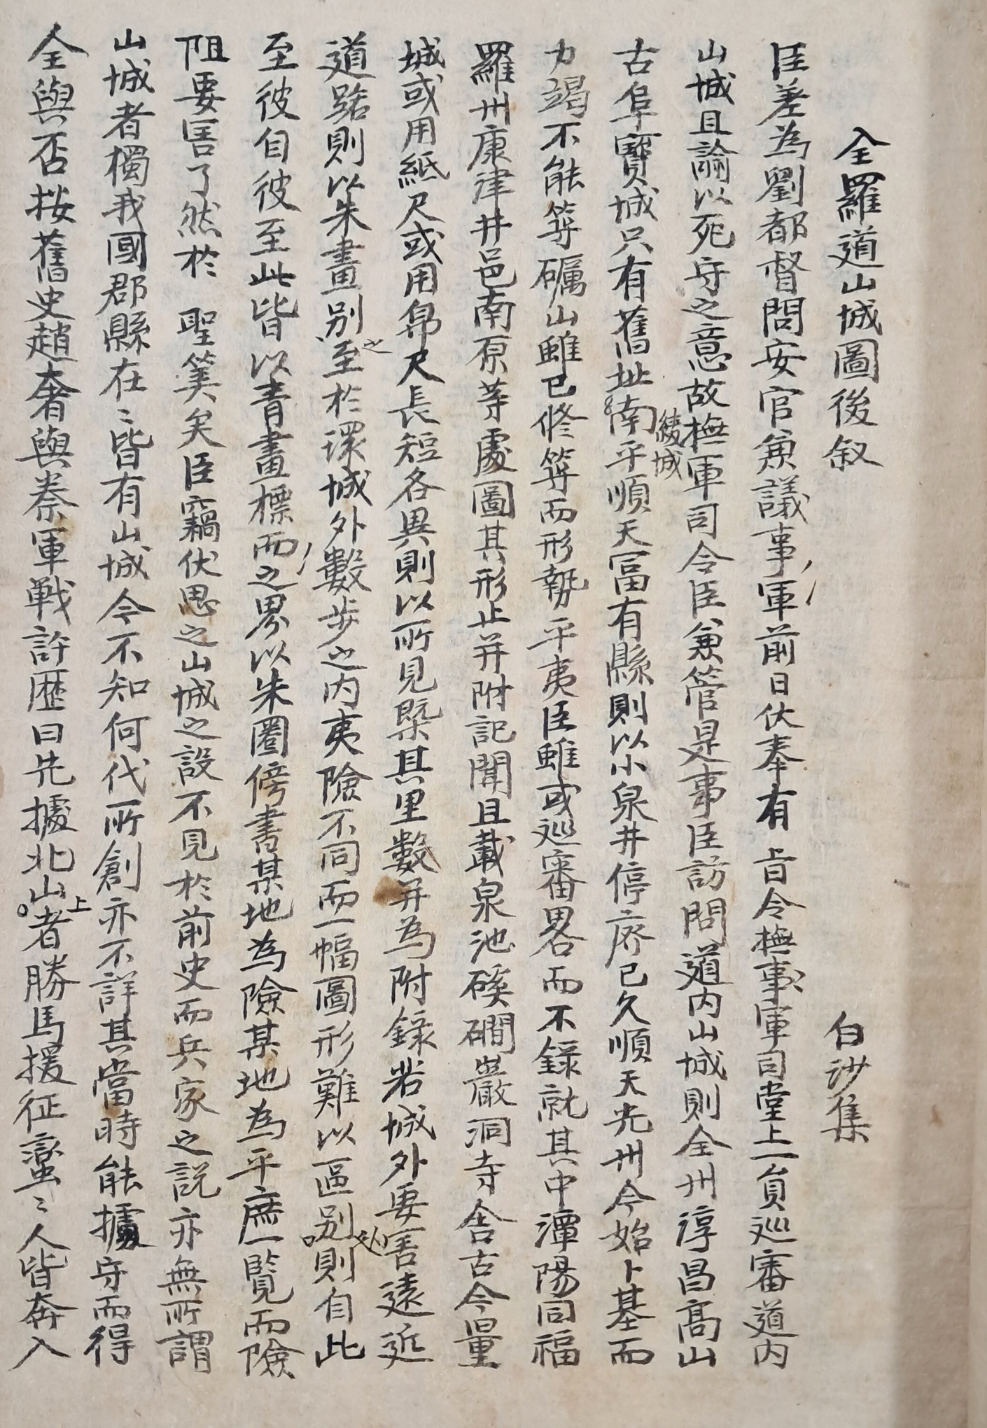 全羅道山城圖後叙　白沙集
臣差為劉都督問安官兼議事軍前日伏奉有旨令撫事軍司堂上一員巡審道內
山城且論以死守之意故撫軍司令臣兼管是事臣訪問道內山城則全州淳昌高山
古阜寶城只有舊址南平綾城順天富有縣則以小泉井停废已久順天光州今始卜基而
力竭不能等礪山雖已修等而形勢平夷臣雖或巡審畧而不錄就其中潭陽同福
羅州康津井邑南原等處圖其形止并附記聞且載泉池磎磵巖洞寺舍古今量
城或用紙尺或用帛尺長短各異則以所見槩其里數并為附錄若城外要害遠近
道路則以朱畫別之至於環城外數步之內夷險不同而一幅圖形難以區別處則自此
至彼自彼至此皆以青畫標而之界以朱圈傍書某地為險某地為平庶一覽而險
阻要害了然於　聖筭矣臣竊伏思之山城之設不見於前史而兵家之說亦無所謂
山城者獨我國郡縣在〻皆有山城今不知何代所創亦不詳其當時能據守而得
全與否按舊史趙奢與秦軍戰許歷曰先據北山上者勝馬援征蠻〻人皆奔入